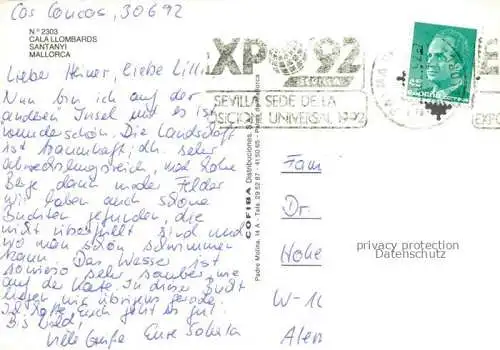 Cas Concos, 30692
Nº 2303
CALA LLOMBARDS
SANTANYI
MALLORCA
Lieber Heiner, Liebe Lilli,
Nun bin ich auf der
anderen Insel und es ist
wunderschön. Die Landschaft
ist traumhaft; d.h. sehr
abwechslungsreich, mal hohe
Berge dann wieder Felder
Wir haben auch schöne
Buchten gefunden, die
nicht überfüllt sind und
wo man schön schwimmen
kann. Das Wasser ist
sowieso sehr sauber, wie
auf der Karte. In dieser Bucht
liegen wir übrigens gerade.
Ich hoffe Euch geht es gut.
Bis bald!
Viele Grüße Eure
COFIBA Distribuciones, S.
Padre Molina, 14 A - Tels. 29 52 87 - 41 50 65 - Palma de Mallorca
EXPO '92
SEVILLA SEDE DE LA
EXPOSICION UNIVERSAL 1992
E
EXPO
Fam
Dr.
Hohe
W-10
Alem
privacy protection
Datenschutz